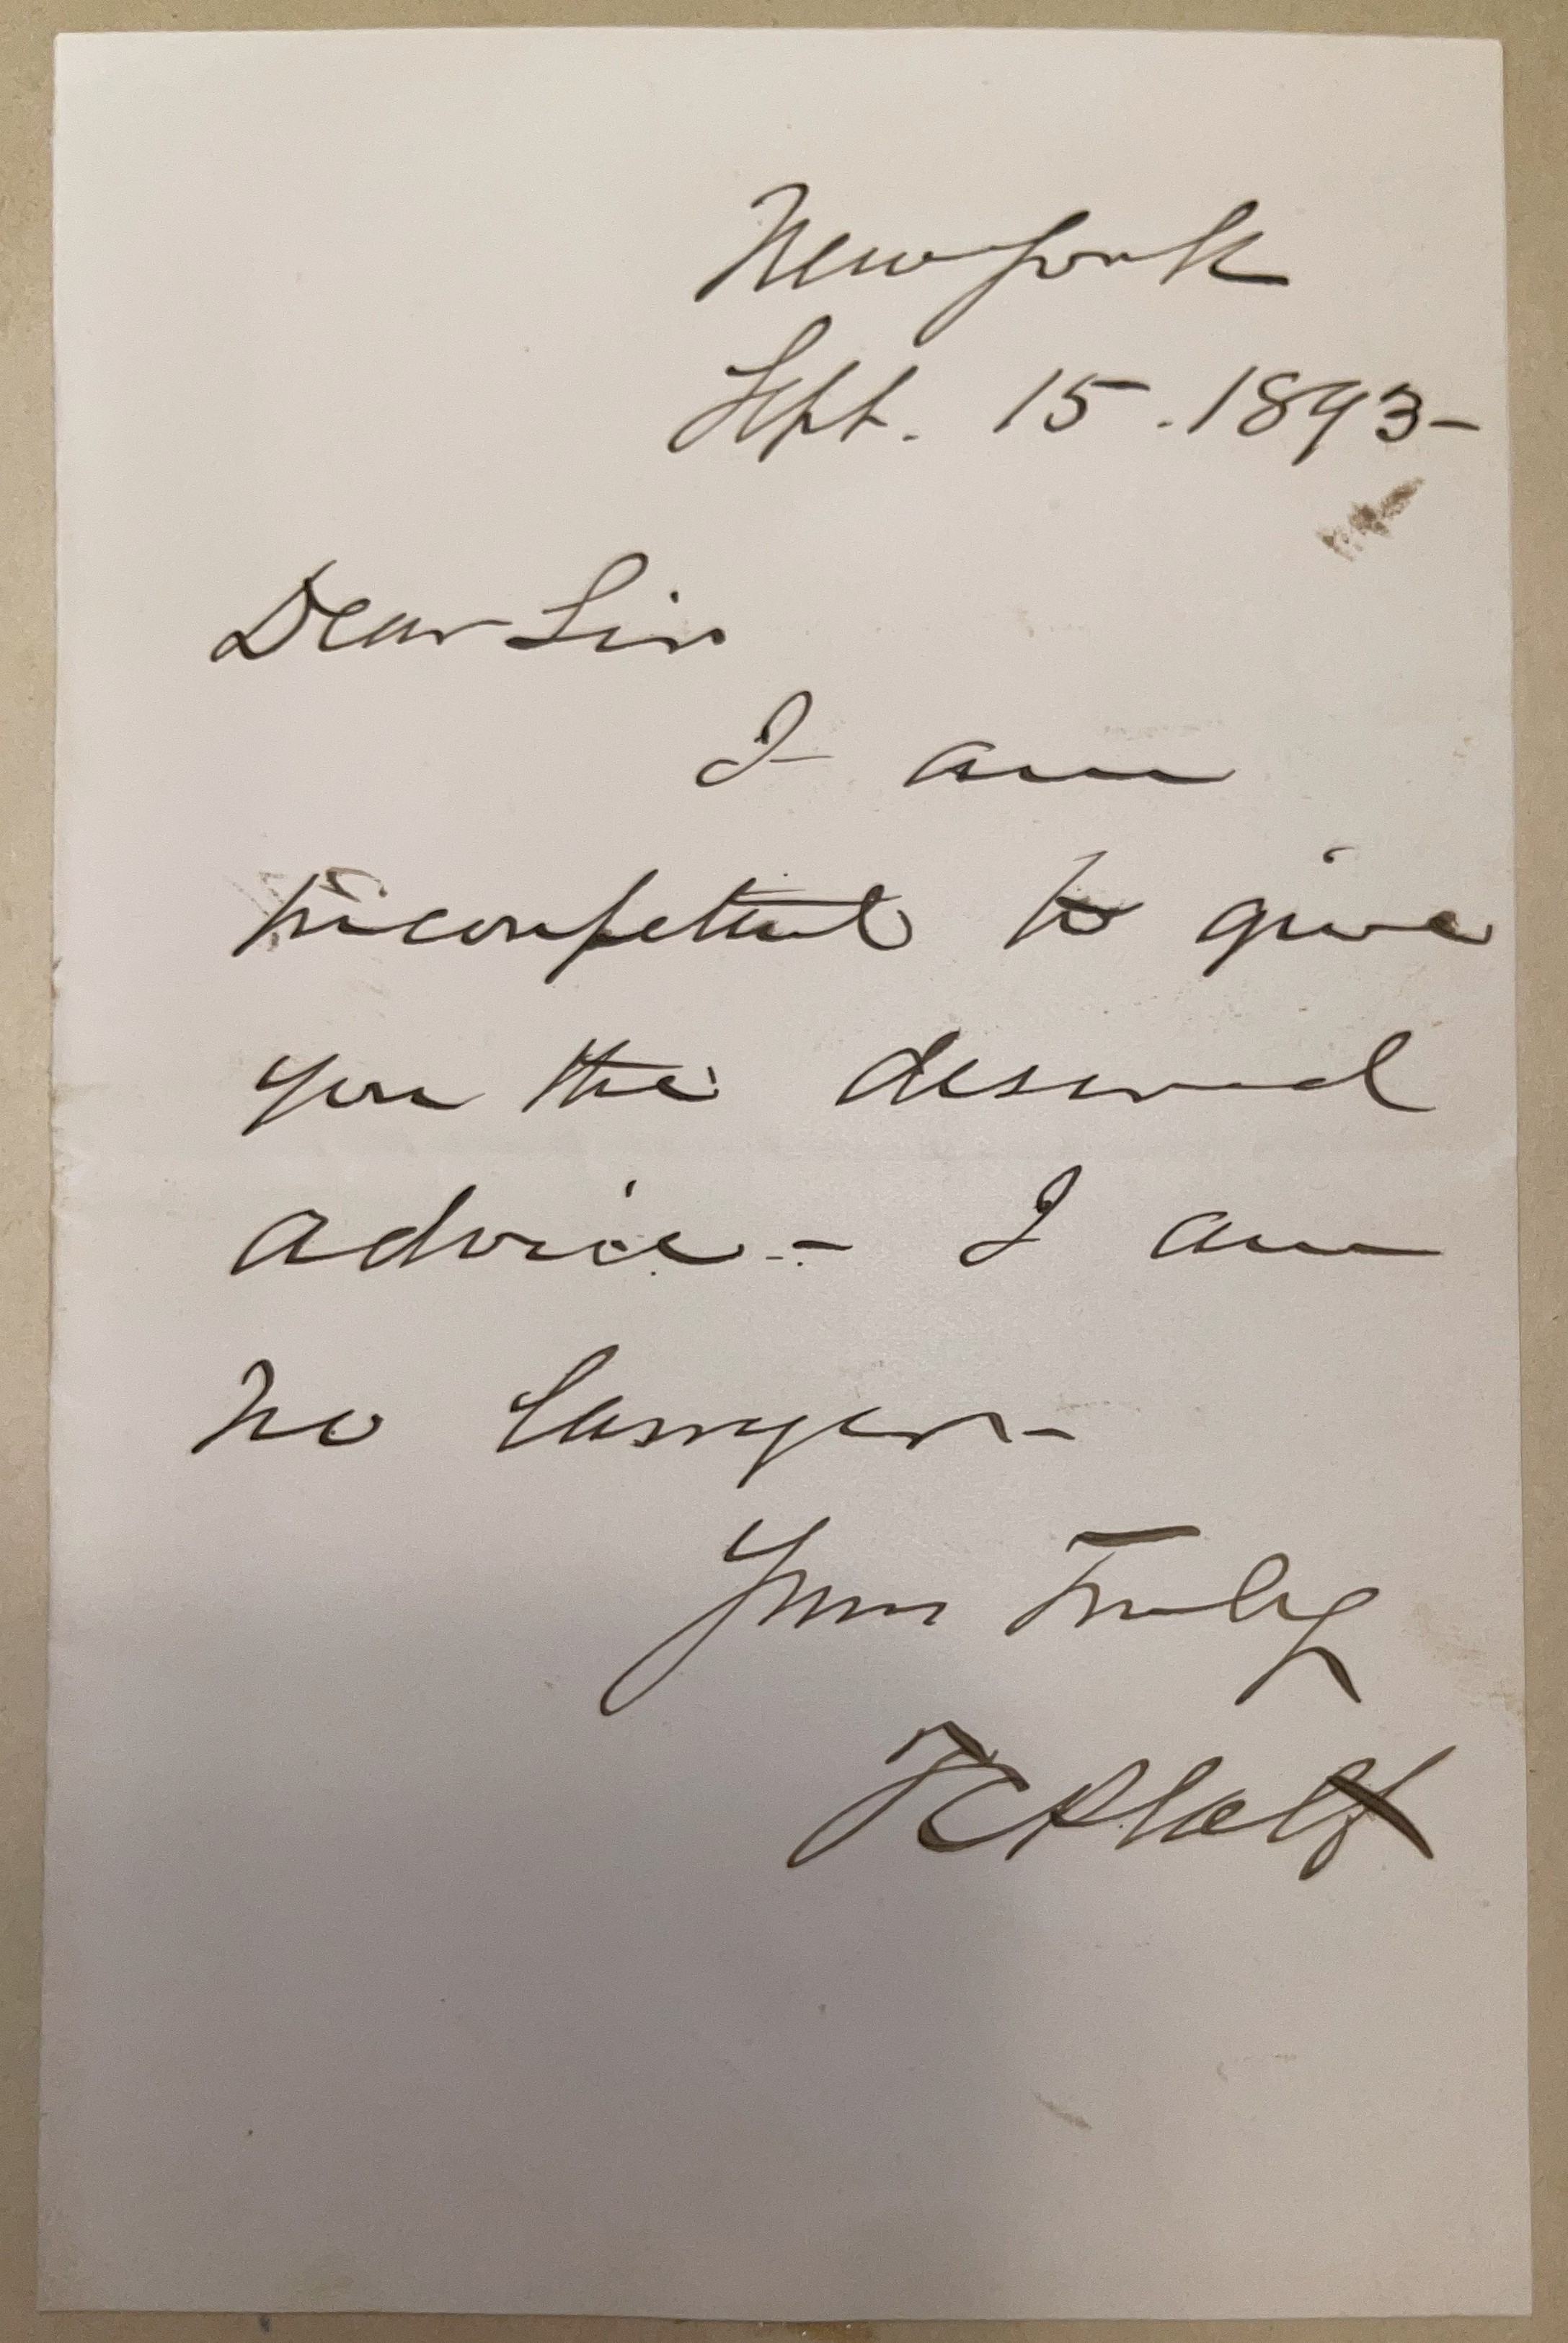 New York
Sept. 15. 1893-
Dear Sir
I am
incompetent to give
you the desired
advice - I am
no lawyer -
Yours Truly
T C Platt